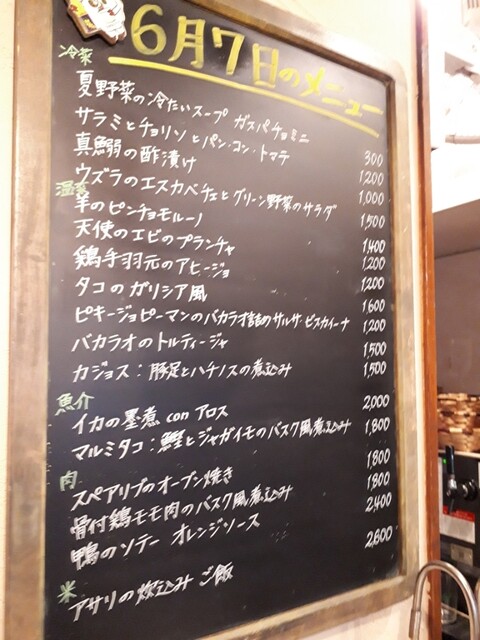 6月7日のメニュー
冷菜
夏野菜の冷たいスープ ガスパチョミニ 300
サラミとチョリソとパン・コン・トマテ 1,200
真鰯の酢漬け 1,000
ウズラのエスカベチェとグリーン野菜のサラダ 1,500
温菜
羊のピンチョモルーノ 1,400
天使のエビのプランチャ 1,200
鶏手羽元のアヒージョ 1,200
タコのガリシア風 1,600
ピキージョピーマンのバカラオ詰めサルサ・ビスカイーナ 1,200
バカラオのトルティージャ 1,500
カジョス:豚足とハチノスの煮込み 1,500
魚介
イカの墨煮 con アロス 2,000
マルミタコ:鰹とジャガイモのバスク風煮込み 1,800
肉
スペアリブのオーブン焼き 1,800
骨付鶏モモ肉のバスク風煮込み 1,800
鴨のソテー オレンジソース 2,400
米
アサリの炊込み ご飯 2,600